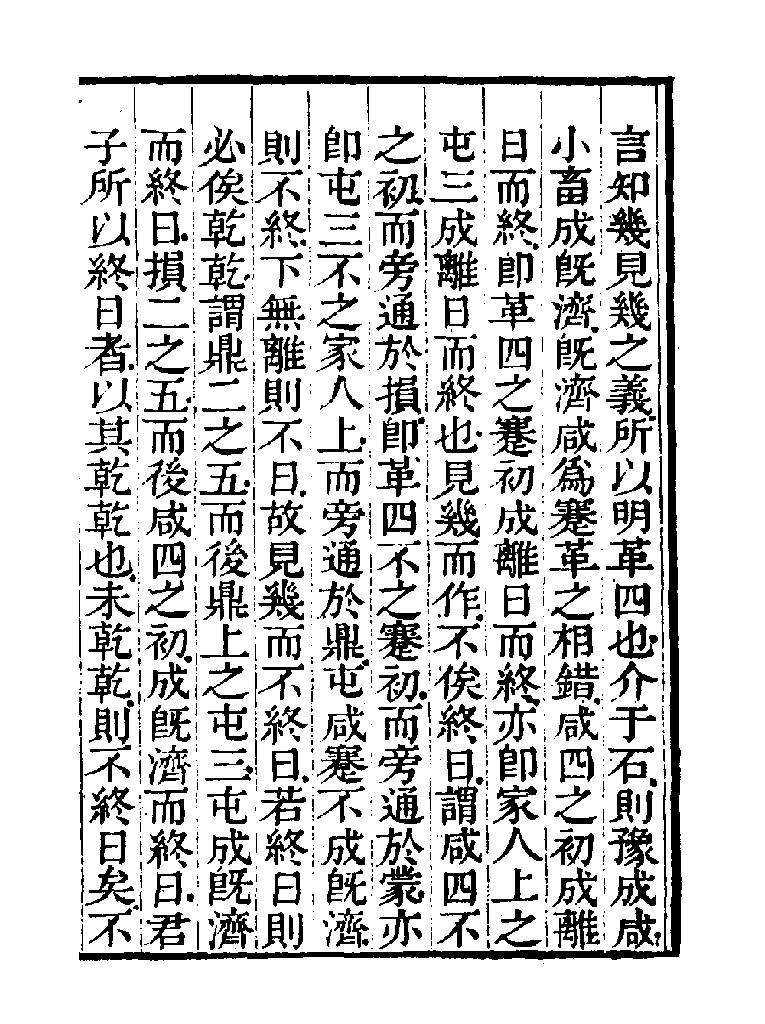 言知幾見幾之義所以明革四也介于石則豫成咸
小畜成旣濟旣濟咸爲蹇革之相錯咸四之初成離
日而終卽革四之蹇初成離日而終亦卽家人上之
屯三成離日而終也見幾而作不俟終日謂咸四不
之初而旁通於損卽革四不之蹇初而旁通於蒙亦
卽屯三不之家人上而旁通於鼎屯咸蹇不成旣濟
則不終下無離則不日故見幾而不終日若終日則
必俟乾乾謂鼎二之五而後鼎上之屯三屯成旣濟
而終日損二之五而後咸四之初成旣濟而終日君
子所以終日者以其乾乾也未乾乾則不終日矣不